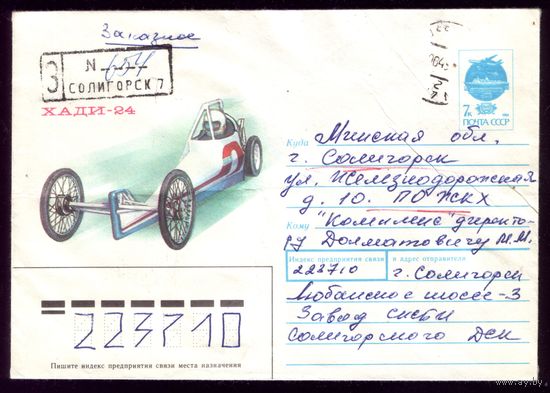 Заказное
З
N 654
СОЛИГОРСК 7
ХАДИ-24
7к
ПОЧТА СССР
Куда Минская обл.
г. Солигорск
ул. Железнодорожная
д. 10. ПО ЖКХ
Кому "Комплекс" директо-
ру Долматовичу М.М.
Индекс предприятия связи и адрес отправителя
223710 г. Солигорск
Любанское шоссе-3
Завод
Солигорского ДСК
223710
Пишите индекс предприятия связи места назначения
ay.by